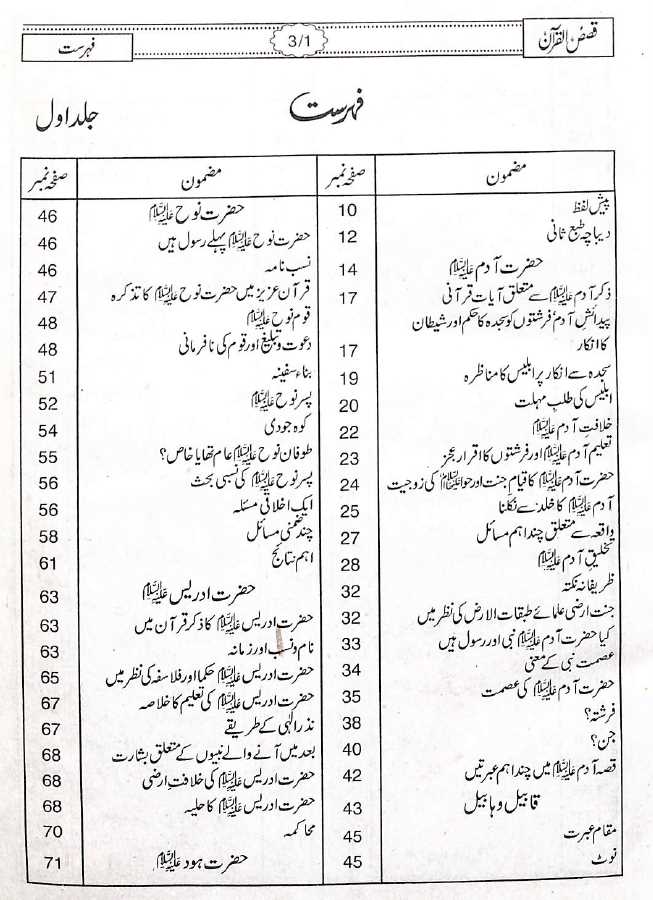 قصص القرآن
3/1
فہرست
فہرست
جلد اول
مضمون صفحہ نمبر
پیش لفظ 10
دیباچہ طبع ثانی 12
حضرت آدم علیہ السلام 14
ذکر آدم علیہ السلام سے متعلق آیات قرآنی 17
پیدائش آدمؑ فرشتوں کو سجدہ کا حکم اور شیطان
کا انکار 17
سجدہ سے انکار پر ابلیس کا مناظرہ 19
ابلیس کی طلب مہلت 20
خلافت آدم علیہ السلام 22
تعلیم آدم علیہ السلام اور فرشتوں کا اقرار عجز 23
حضرت آدم علیہ السلام کا قیام جنت اور حوا علیہا السلام کی زوجیت 24
آدم علیہ السلام کا خلد سے نکلنا 25
واقعہ سے متعلق چند اہم مسائل 27
تخلیق آدم علیہ السلام 28
ظریفانہ نکتہ 32
جنت ارضی علمائے طبقات الارض کی نظر میں 32
کیا حضرت آدم علیہ السلام نبی اور رسول ہیں 33
عصمت نبی کے معنی 34
حضرت آدم علیہ السلام کی عصمت 35
فرشتہ؟ 38
جن؟ 40
قصہ آدم علیہ السلام میں چند اہم عبرتیں 42
قابیل و ہابیل 43
مقام عبرت 45
نوٹ 45
مضمون صفحہ نمبر
حضرت نوح علیہ السلام 46
حضرت نوح علیہ السلام پہلے رسول ہیں 46
نسب نامہ 46
قرآن عزیز میں حضرت نوح علیہ السلام کا تذکرہ 47
قوم نوح علیہ السلام 48
دعوت و تبلیغ اور قوم کی نافرمانی 48
بناء سفینہ 51
پسر نوح علیہ السلام 52
کوہ جودی 54
طوفان نوح علیہ السلام عام تھا یا خاص؟ 55
پسر نوح علیہ السلام کی نسبی بحث 56
ایک اخلاقی مسئلہ 56
چند ضمنی مسائل 58
اہم نتائج 61
حضرت ادریس علیہ السلام 63
حضرت ادریس علیہ السلام کا ذکر قرآن میں 63
نام و نسب اور زمانہ 63
حضرت ادریس علیہ السلام حکما اور فلاسفہ کی نظر میں 65
حضرت ادریس علیہ السلام کی تعلیم کا خلاصہ 67
نذر الٰہی کے طریقے 67
بعد میں آنے والے نبیوں کے متعلق بشارت 68
حضرت ادریس علیہ السلام کی خلافت ارضی 68
حضرت ادریس علیہ السلام کا حلیہ 68
محاکمہ 70
حضرت ہود علیہ السلام 71